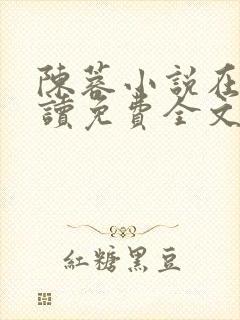 陳蓉小說在
讀免費全文
紅糖黑豆